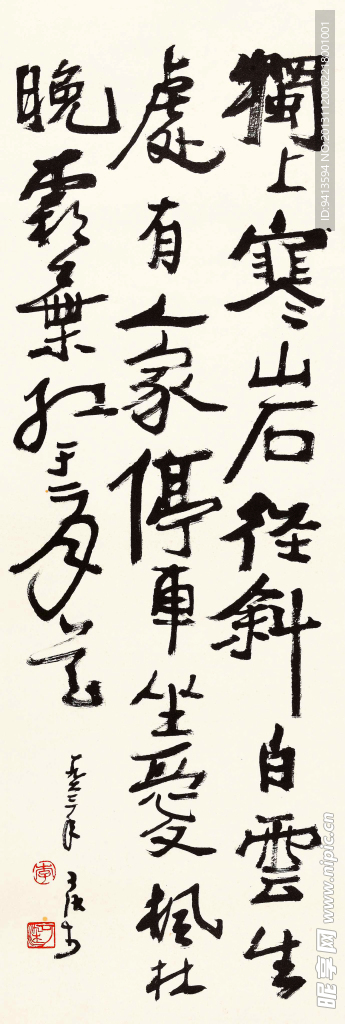 獨上寒山石径斜白雲生
處有人家停車坐愛楓林
晚霜葉紅于二月花
李
ID:9413594 NO:20131120062218001001
昵享网 www.nipic.cn